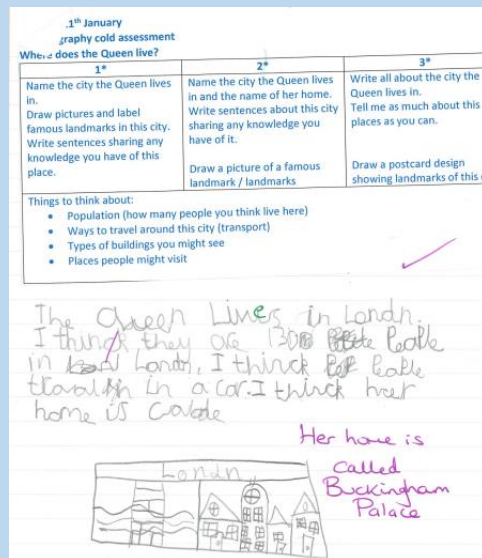 .1th January
graphy cold assessment
Where does the Queen live?
1*
Name the city the Queen lives
in.
Draw pictures and label
famous landmarks in this city.
Write sentences sharing any
knowledge you have of this
place.
2*
Name the city the Queen lives
in and the name of her home.
Write sentences about this city
sharing any knowledge you
have of it.
Draw a picture of a famous
landmark / landmarks
3*
Write all about the city the
Queen lives in.
Tell me as much about this
places as you can.
Draw a postcard design
showing landmarks of this
Things to think about:
• Population (how many people you think live here)
• Ways to travel around this city (transport)
• Types of buildings you might see
• Places people might visit
The Queen Lives in Londn.
I think they are 1300 Peaple
in Londn. I thinck Peaple
in a car. I thinck her
home is
Her home is
called
Buckingham
Palace
Londn